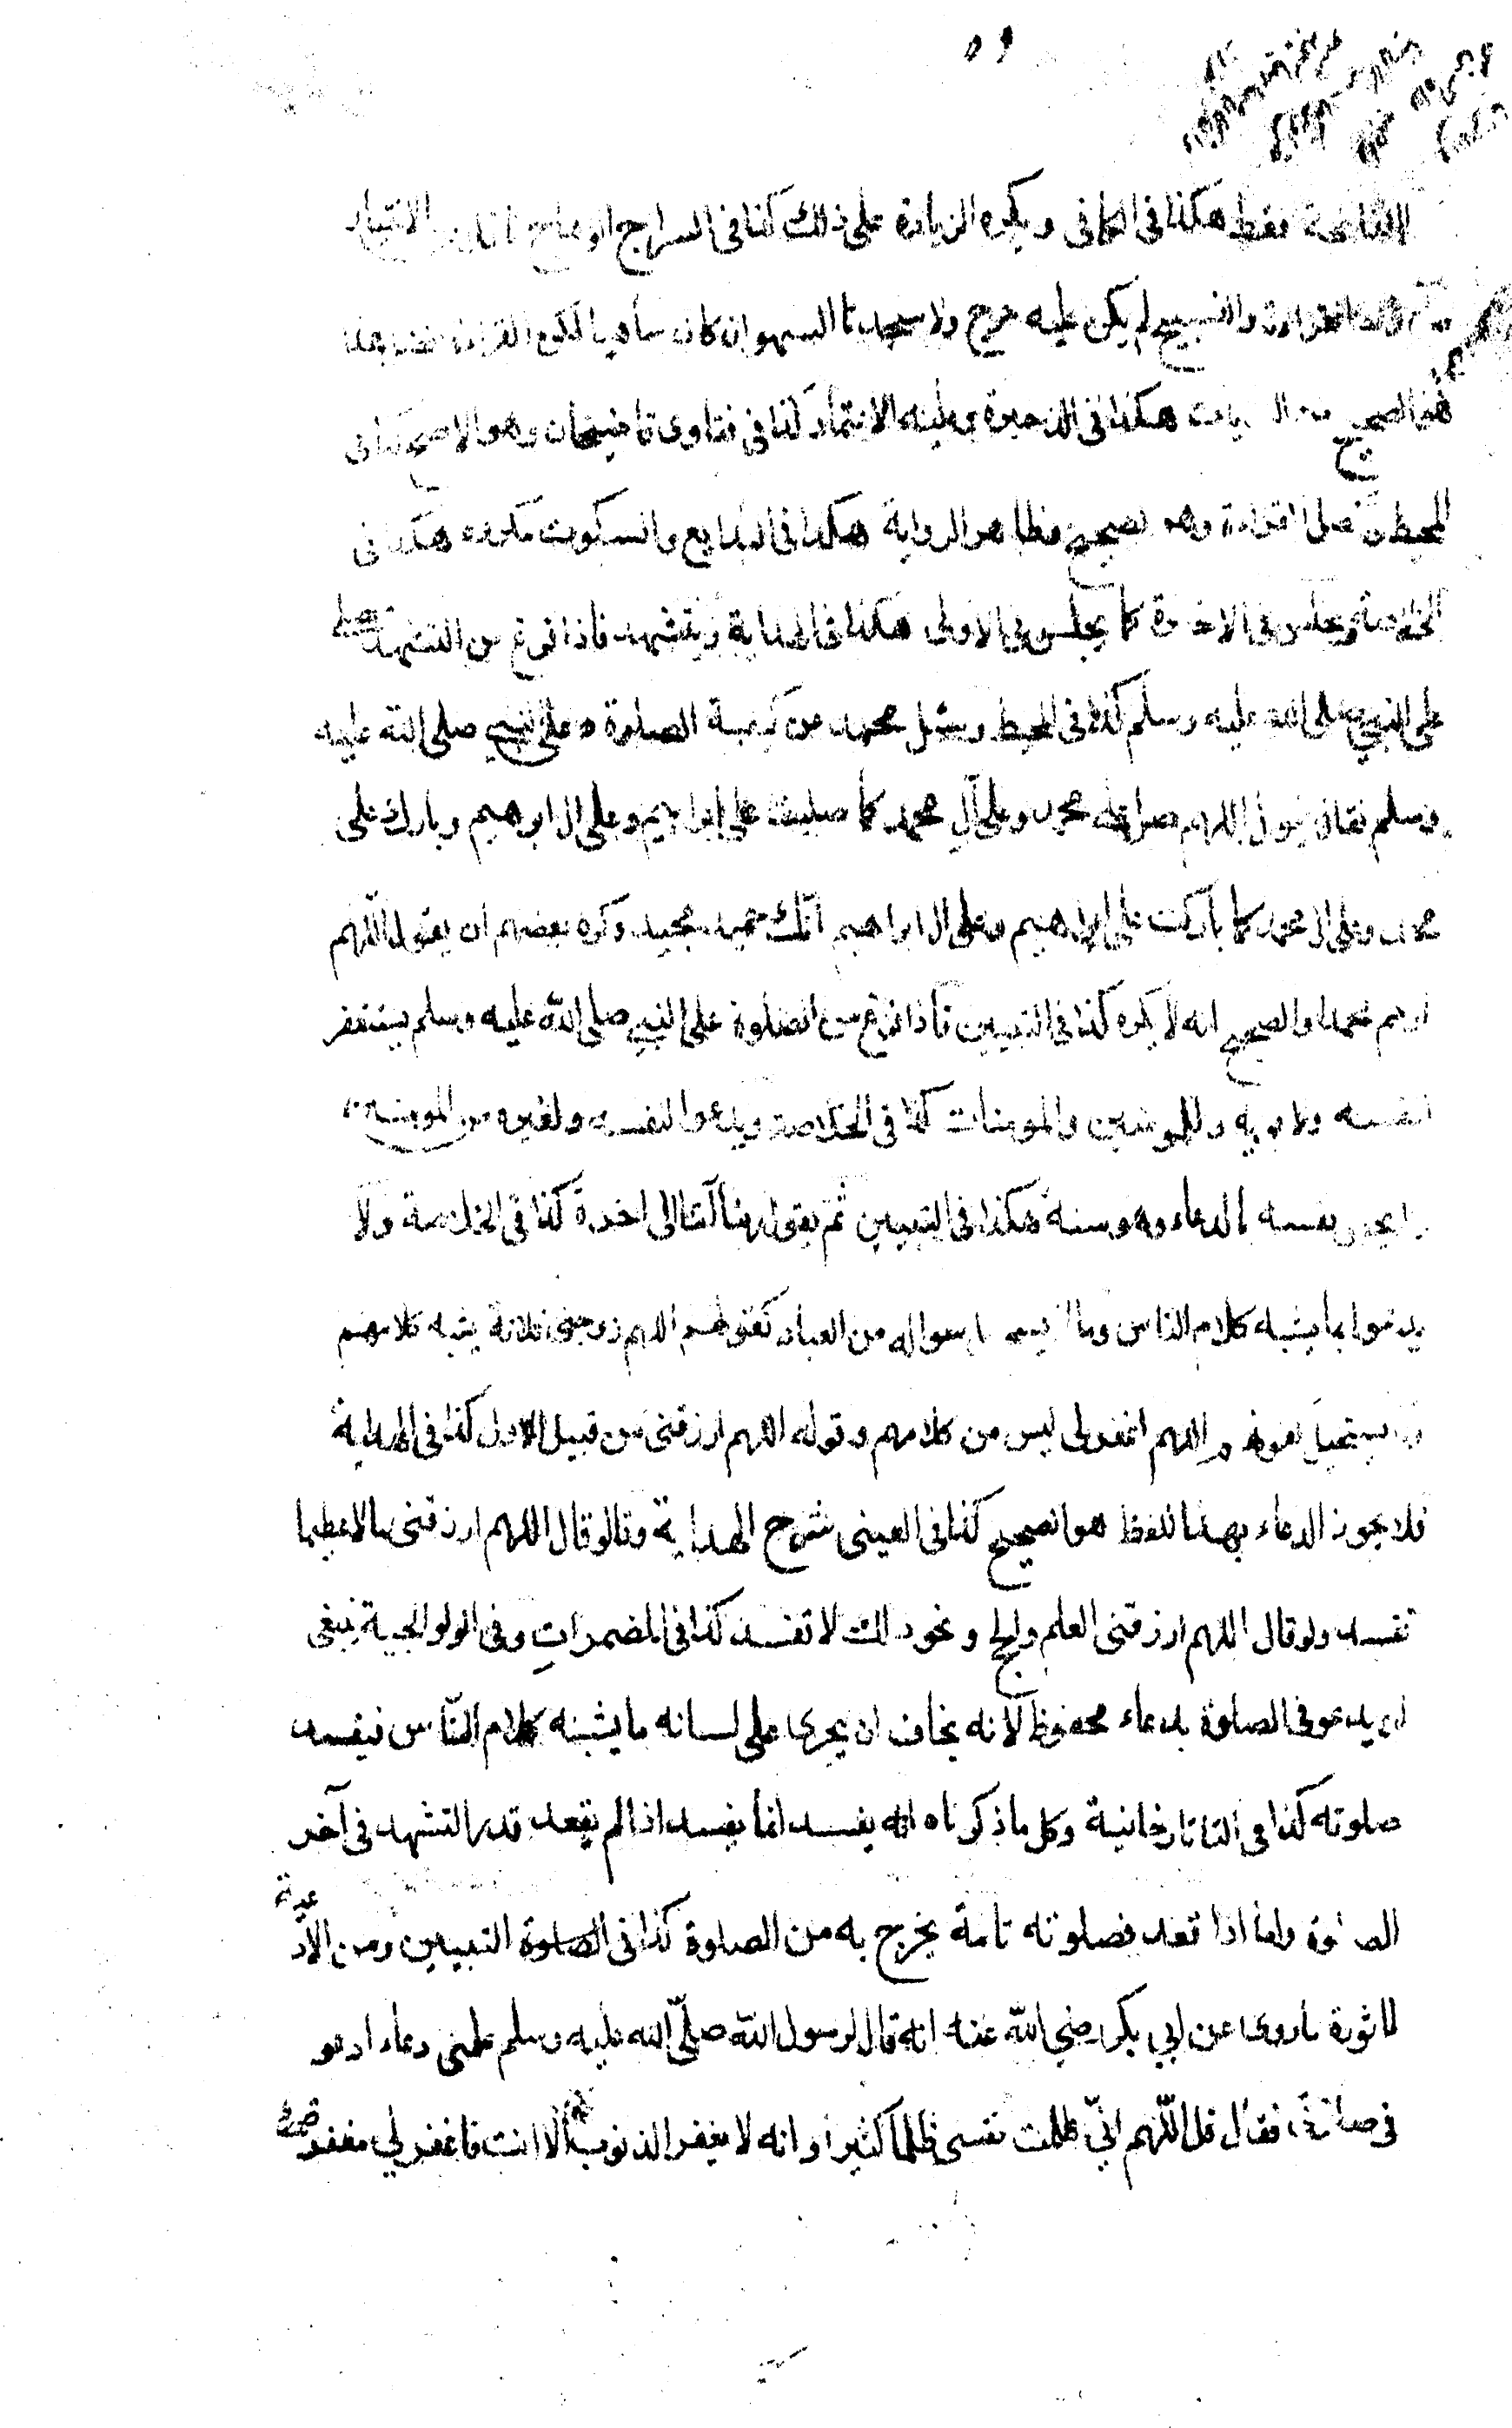 الفاتحة فقط هكذا في الكافي ويكره الزيادة على ذلك كذا في السراج الوهاج الاختيار
القراءة والتسبيح لم يكن عليه حرج ولا سجدتا السهو ان كان ساهيا لكن القراءة افضل هذا
هو الصحيح من الروايات هكذا في الذخيرة وعليه الاعتماد كذا في فتاوى قاضيخان وهو الاصح كذا في
المحيط في فصل القراءة وهو الصحيح وظاهر الرواية هكذا في البدايع والسكوت مكروه هكذا في
الخلاصة ويجلس في الاخيرة كما يجلس في الاولى هكذا في الهداية ويتشهد فاذا فرغ من التشهد يصلي
على النبي صلى الله عليه وسلم كذا في المحيط وسئل محمد عن كيفية الصلوة على النبي صلى الله عليه
وسلم فقال يقول اللهم صل على محمد وعلى آل محمد كما صليت على ابراهيم وعلى ال ابراهيم وبارك على
محمد وعلى ال محمد كما باركت على ابراهيم وعلى ال ابراهيم انك حميد مجيد وكره بعضهم ان يقول اللهم
ارحم محمدا والصحيح انه لا يكره كذا في التبيين فاذا فرغ من الصلوة على النبي صلى الله عليه وسلم يستغفر
لنفسه ولابويه وللمومنين والمومنات كذا في الخلاصة ويدعوا لنفسه ولغيره من المومنين
ولا يخص نفسه بالدعاء وهو سنة هكذا في التبيين ثم يقول ربنا آتنا الى اخره كذا في الخلاصة ولا
يدعوا بما يشبه كلام الناس وما لا يستحيل سواله من العباد كقولهم اللهم زوجني فلانة يشبه كلامهم
وما يستحيل كقولهم اللهم اغفر لى ليس من كلامهم وقوله اللهم ارزقنى من قبيل الاول كذا فى الهداية
فلا يجوز الدعاء بهذا اللفظ هو الصحيح كذا فى العينى شرح الهداية وقالو قال اللهم ارزقنى مالا عظيما
تفسد ولو قال اللهم ارزقنى العلم والحج ونحو ذلك لا تفسد كذا فى المضمرات وفى الولوالجية ينبغى
ان يدعو فى الصلوة بدعاء محفوظ لانه يخاف ان يجرى على لسانه ما يشبه كلام الناس فيفسد
صلوته كذا فى التاتارخانية وكل ما ذكرناه انه يفسد انما يفسد اذا لم يقعد قدر التشهد فى آخر
الصلوة واما اذا قعد فصلوته تامة يخرج به من الصلوة كذا فى الصلوة التبيين ومن الادعية
الماثورة ما روى عن ابي بكر رضي الله عنه انه قال لرسول الله صلى الله عليه وسلم علمنى دعاء ادعو
فى صلاتى فقال قل اللهم اني ظلمت نفسى ظلما كثيرا وانه لا يغفر الذنوب الا انت فاغفر لي مغفرة